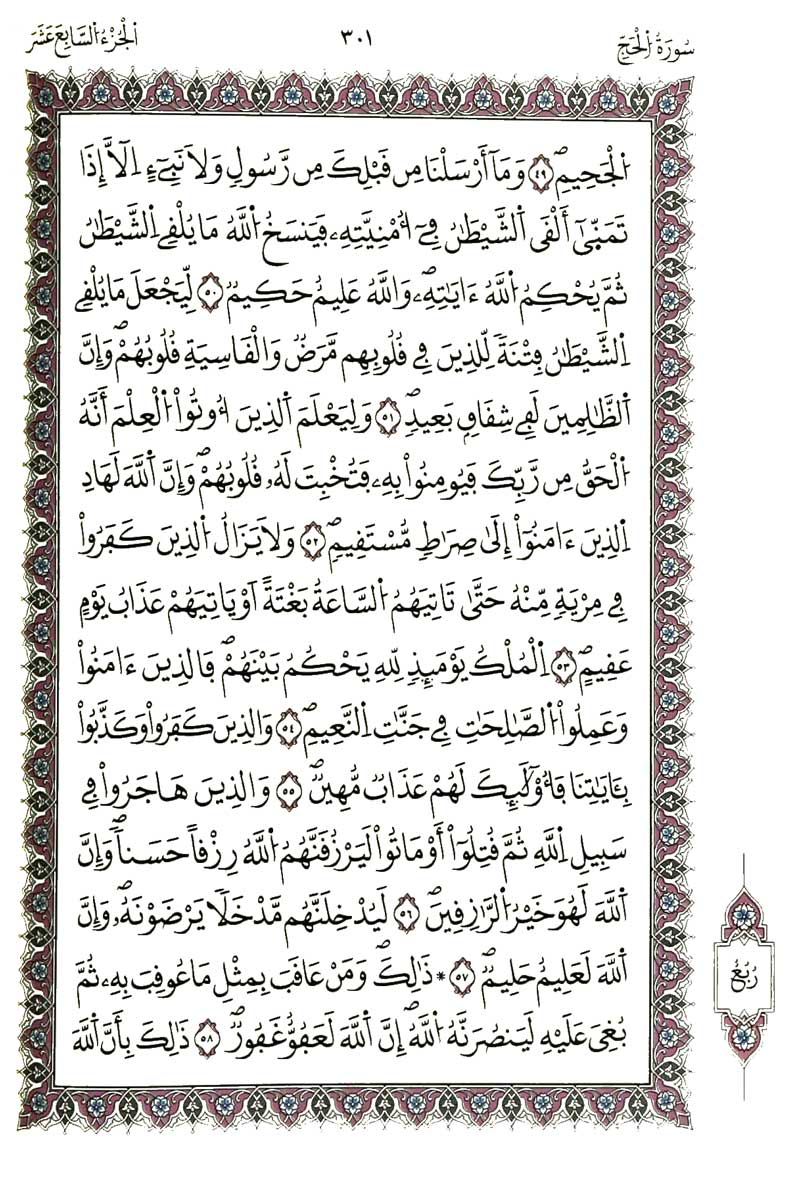 سُورَةُ اُلْحَجِّ
٣٠١
اَلْجُزْءُ السَّابِعَ عَشَرَ
اُلْجَحِيمِۖ ٤٩ وَمَآ أَرْسَلْنَا مِن قَبْلِكَ مِن رَّسُولٍ وَلَا نَبِيٓءٍ اِلَّآ إِذَا
تَمَنّ۪ىٰٓ أَلْقَى اَلشَّيْطَٰنُ فِےٓ أُمْنِيَّتِهِۦ فَيَنسَخُ اُللَّهُ مَا يُلْقِے اِلشَّيْطَٰنُ
ثُمَّ يُحْكِمُ اُللَّهُ ءَايَٰتِهِۦۖ وَاللَّهُ عَلِيمٌ حَكِيمٌ ٥٠ لِّيَجْعَلَ مَا يُلْقِے
اِلشَّيْطَٰنُ فِتْنَةً لِّلذِينَ فِے قُلُوبِهِم مَّرَضٌ وَالْقَاسِيَةِ قُلُوبُهُمْۖ وَإِنَّ
اَلظَّٰلِمِينَ لَفِے شِقَاقٍ بَعِيدٍۖ ٥١ وَلِيَعْلَمَ اَلذِينَ أُوتُواْ اُلْعِلْمَ أَنَّهُ
اُلْحَقُّ مِن رَّبِّكَ فَيُومِنُواْ بِهِۦ فَتُخْبِتَ لَهُۥ قُلُوبُهُمْۖ وَإِنَّ اَللَّهَ لَهَادِ
اِلذِينَ ءَامَنُوٓاْ إِلَىٰ صِرَٰطٍ مُّسْتَقِيمٍۖ ٥٢ وَلَا يَزَالُ اُلذِينَ كَفَرُواْ
فِے مِرْيَةٍ مِّنْهُ حَتَّىٰ تَاتِيَهُمُ اُلسَّاعَةُ بَغْتَةً اَوْ يَاتِيَهُمْ عَذَابُ يَوْمٍ
عَقِيمٍۖ ٥٣ اِلْمُلْكُ يَوْمَئِذٍ لِّلهِ يَحْكُمُ بَيْنَهُمْۖ فَالذِينَ ءَامَنُواْ
وَعَمِلُواْ اُلصَّٰلِحَٰتِ فِے جَنَّٰتِ اِلنَّعِيمِۖ ٥٤ وَالذِينَ كَفَرُواْ وَكَذَّبُواْ
بِـَٔايَٰتِنَا فَأُوْلَٰٓئِكَ لَهُمْ عَذَابٌ مُّهِينٌۖ ٥٥ وَالذِينَ هَاجَرُواْ فِے
سَبِيلِ اِللَّهِ ثُمَّ قُتِلُوٓاْ أَوْ مَاتُواْ لَيَرْزُقَنَّهُمُ اُللَّهُ رِزْقاً حَسَناًۖ وَإِنَّ
اَللَّهَ لَهُوَ خَيْرُ اُلرَّٰزِقِينَۖ ٥٦ لَيُدْخِلَنَّهُم مَّدْخَلًا يَرْضَوْنَهُۥۖ وَإِنَّ
اَللَّهَ لَعَلِيمٌ حَلِيمٌۖ ٥٧ * ذَٰلِكَۖ وَمَنْ عَاقَبَ بِمِثْلِ مَا عُوقِبَ بِهِۦ ثُمَّ
بُغِيَ عَلَيْهِ لَيَنصُرَنَّهُ اُللَّهُۖ إِنَّ اَللَّهَ لَعَفُوٌّ غَفُورٌۖ ٥٨ ذَٰلِكَ بِأَنَّ اَللَّهَ
رُبُعُ